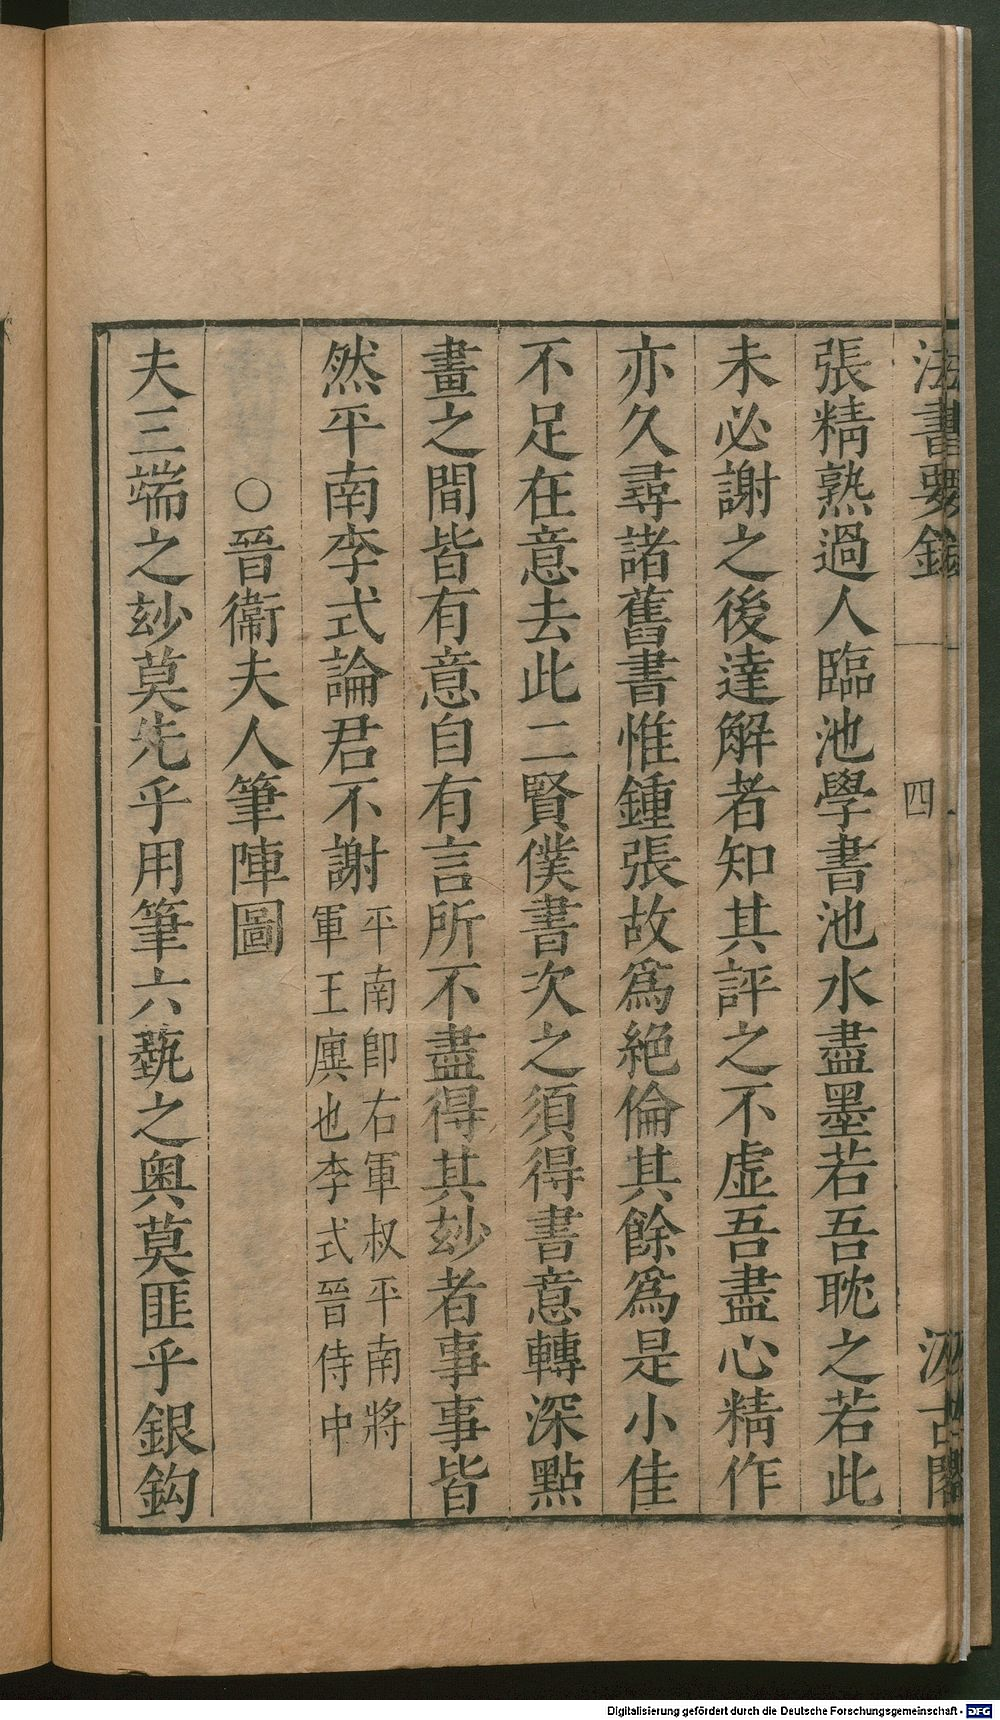 法書要錄 一 四 汲古閣
張精熟過人臨池學書池水盡墨若吾耽之若此
未必謝之後達解者知其評之不虛吾盡心精作
亦久尋諸舊書惟鍾張故爲絕倫其餘爲是小佳
不足在意去此二賢僕書次之須得書意轉深點
畫之間皆有意自有言所不盡得其玅者事事皆
然平南李式論君不謝
平南卽右軍叔平南將
軍王廙也李式晉侍中
○晉衞夫人筆陣圖
夫三端之玅莫先乎用筆六藝之奧莫匪乎銀鈎
Digitalisierung gefördert durch die Deutsche Forschungsgemeinschaft - DFG